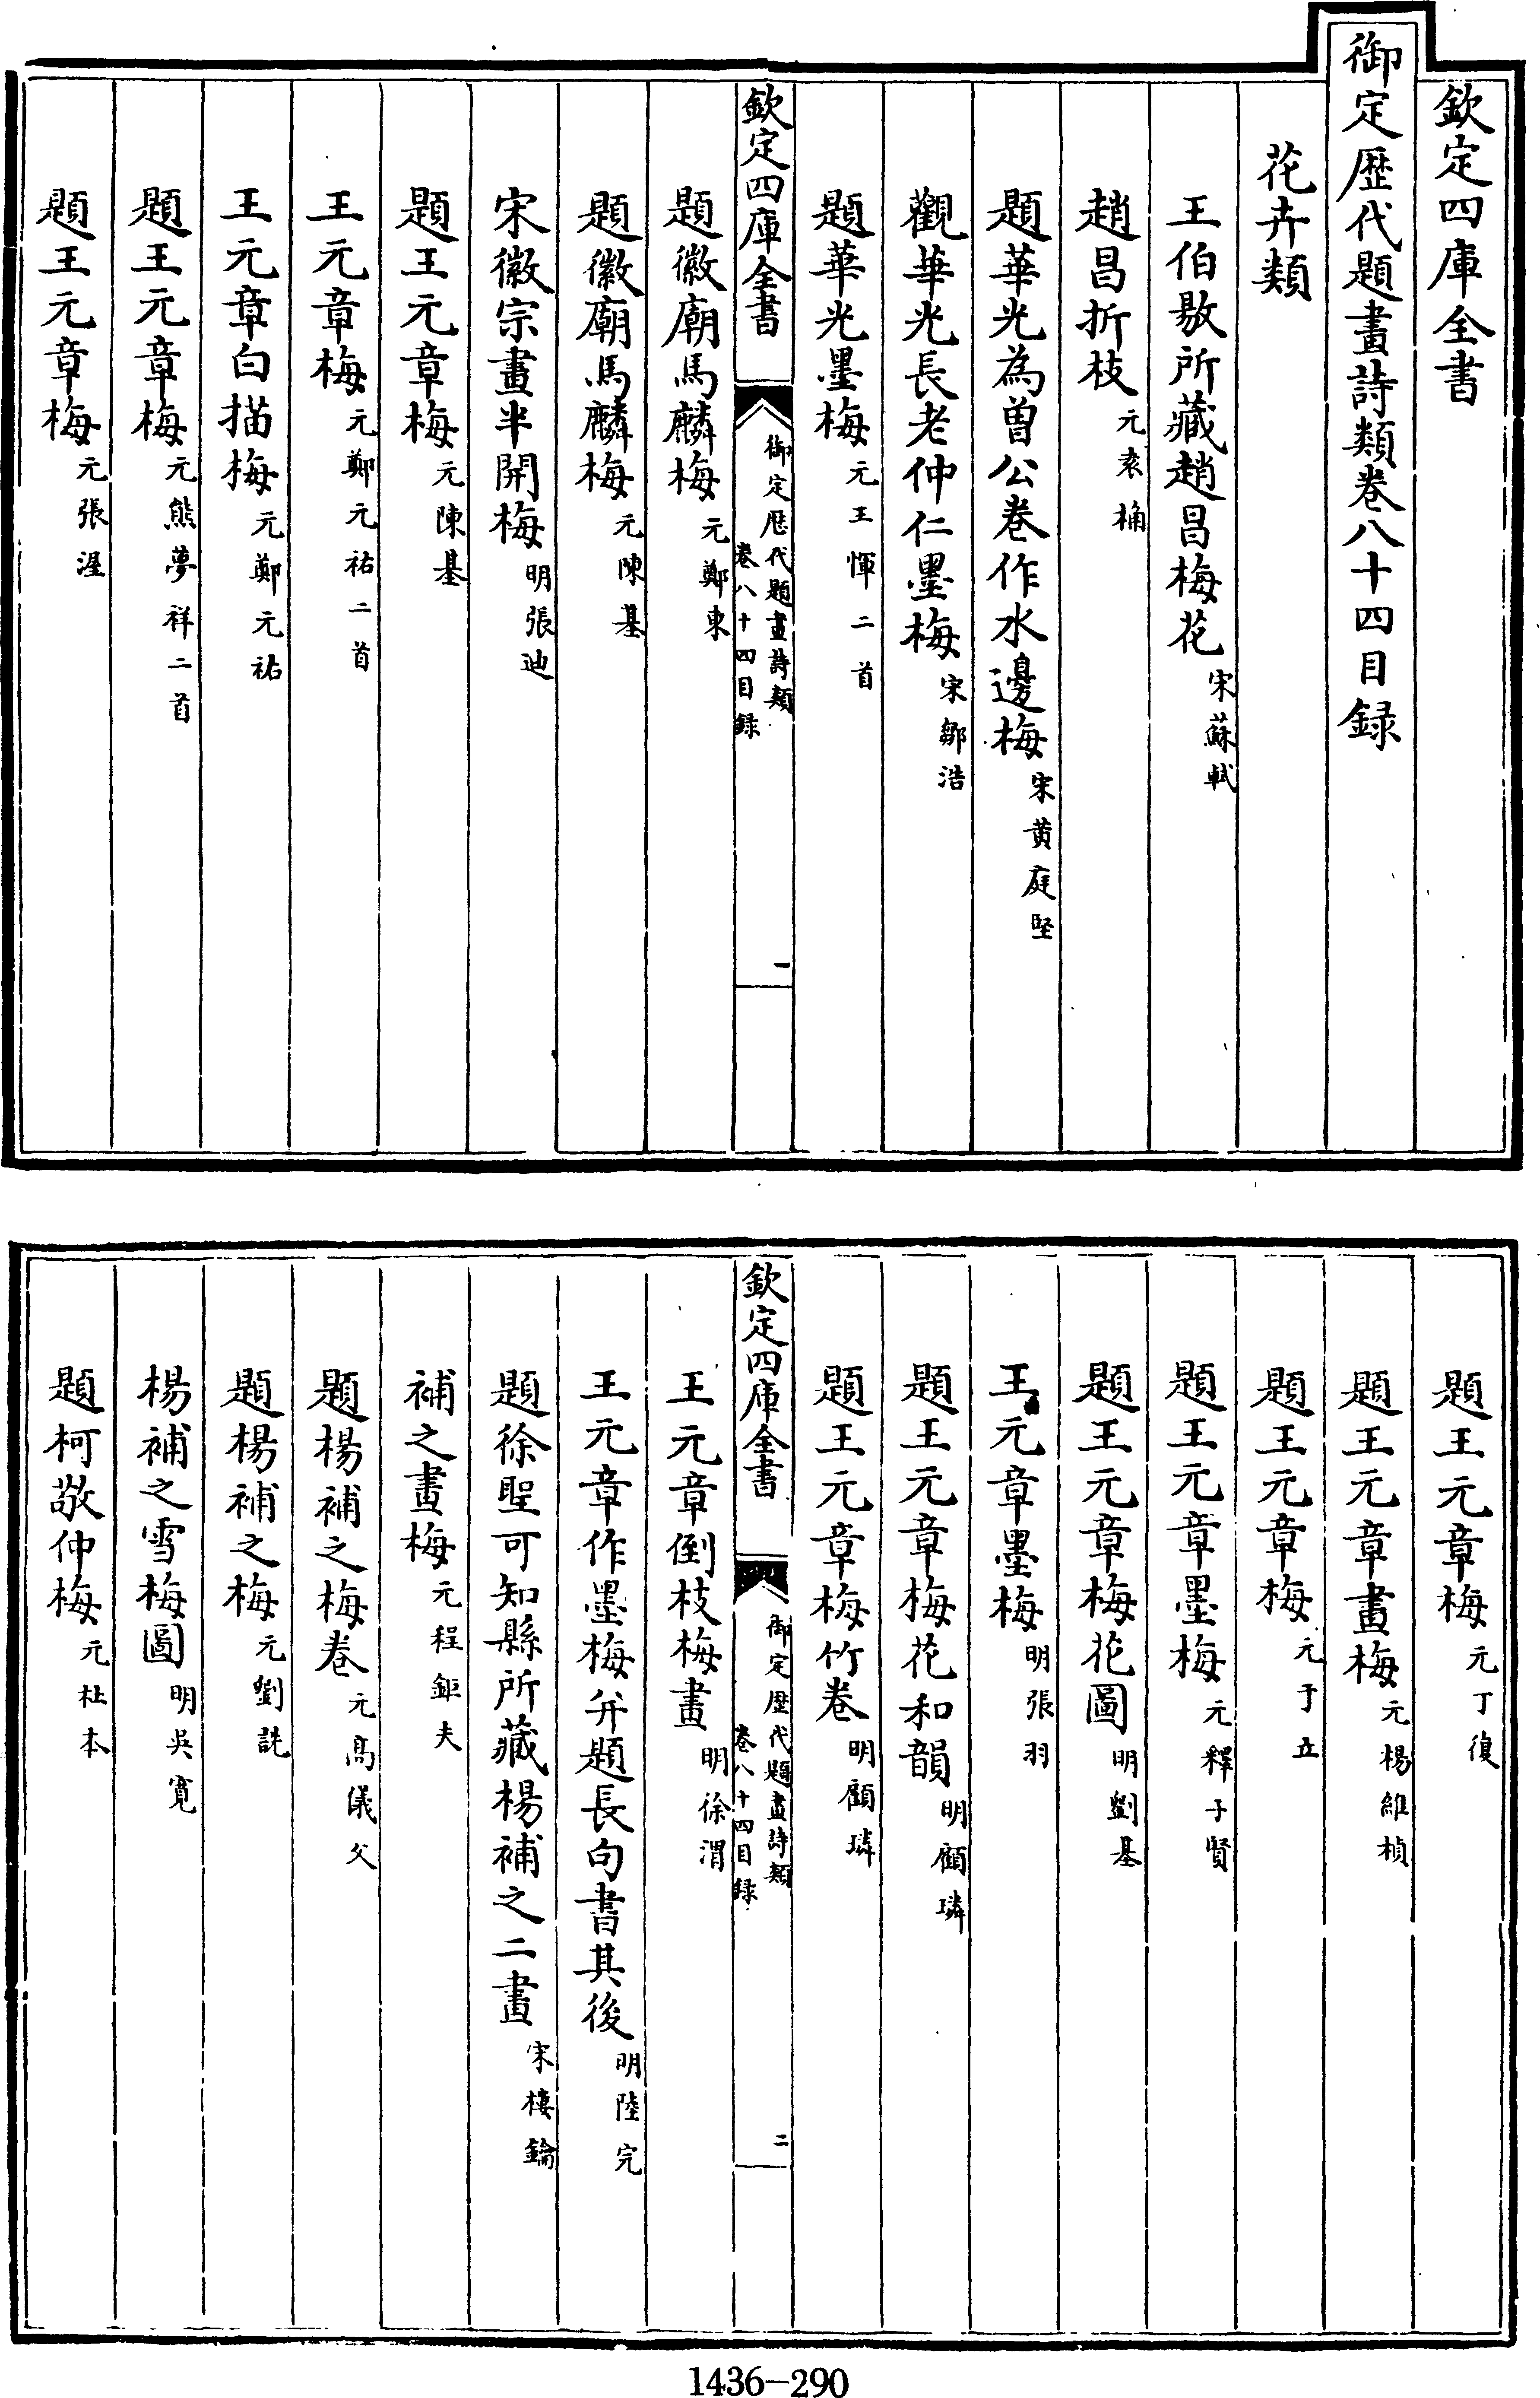 欽定四庫全書
御定歷代題畫詩類卷八十四目録
花卉類
王伯敭所藏趙昌梅花宋蘇軾
趙昌折枝元袁桷
題華光為曾公卷作水邊梅宋黄庭堅
觀華光長老仲仁墨梅宋鄒浩
題華光墨梅元王惲二首
欽定四庫全書
御定歷代題畫詩類
卷八十四目録
一
題徽廟馬麟梅元鄭東
題徽廟馬麟梅元陳基
宋徽宗畫半開梅明張迪
題王元章梅元陳基
王元章梅元鄭元祐二首
王元章白描梅元鄭元祐
題王元章梅元熊夢祥二首
題王元章梅元張渥
題王元章梅元丁復
題王元章畫梅元楊維楨
題王元章梅元于立
題王元章墨梅元釋子賢
題王元章梅花圖明劉基
王元章墨梅明張羽
題王元章梅花和韻明顧璘
題王元章梅竹卷明顧璘
欽定四庫全書
御定歷代題畫詩類
卷八十四目録
二
王元章倒枝梅畫明徐渭
王元章作墨梅并題長句書其後明陸完
題徐聖可知縣所藏楊補之二畫宋樓鑰
補之畫梅元程鉅夫
題楊補之梅卷元髙儀父
題楊補之梅元劉詵
楊補之雪梅圖明吳寛
題柯敬仲梅元杜本
1436-290